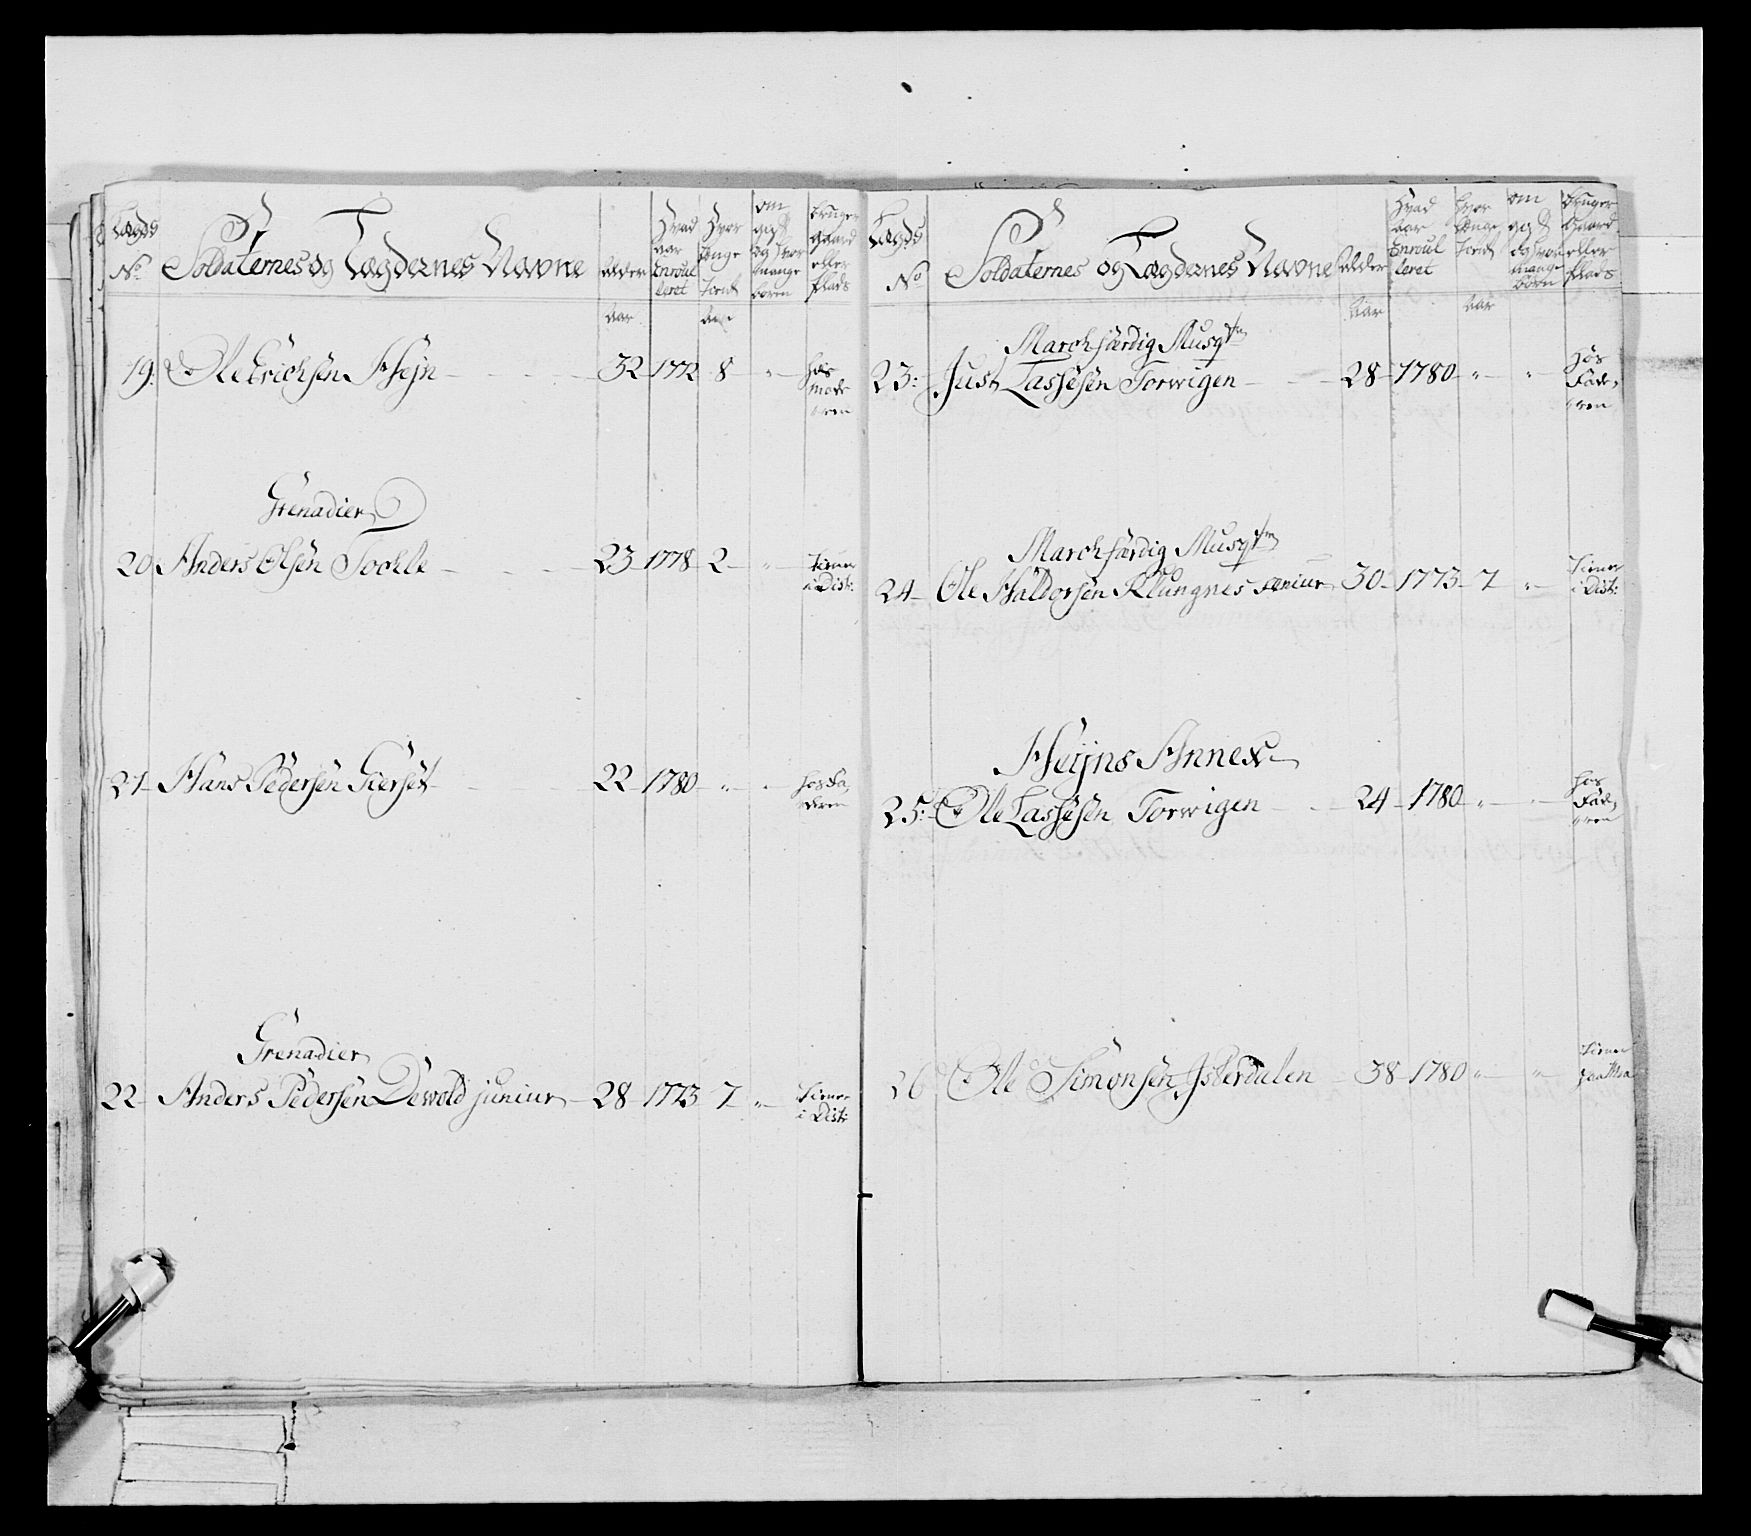 Lægds No
Soldaternes og Lægdernes Navne
Alder
Hvad aar Enroulleret
Hvor længe tient
om gift og hvor mange børn
bruger gaard eller plads
Aar
Aar
19. Ole Erichsen Hejn 32 1772 8 " hos Moderen
Grenadier
20 Anders Olsen Tockle 23 1778 2 " tiener i Dist:
21 Hans Pedersen Gierset 22 1780 " " hos faderen
Grenadier
22 Anders Pedersen Dewold juniur 28 1773 7 " tiener i Dist:
Lægds No
Soldaternes og Lægdernes Navne
Alder
Hvad Aar Enroulleret
hvor længe tient
om gift og hvor mange børn
bruger Gaard eller plads
Aar
Aar
Marchfærdig Musqtr
23: Just Lassesen Torwigen 28 1780 " " hos Faderen
Marchfærdig Musqtr
24 Ole Haldorsen Klungnes seniur 30 1773 7 " tiener i Dist:
Heijns Annex
25: Ole Lassesen Torwigen 24 1780 " " hos Faderen
26 Ole Simonsen Isterdalen 38 1780 " " tiener